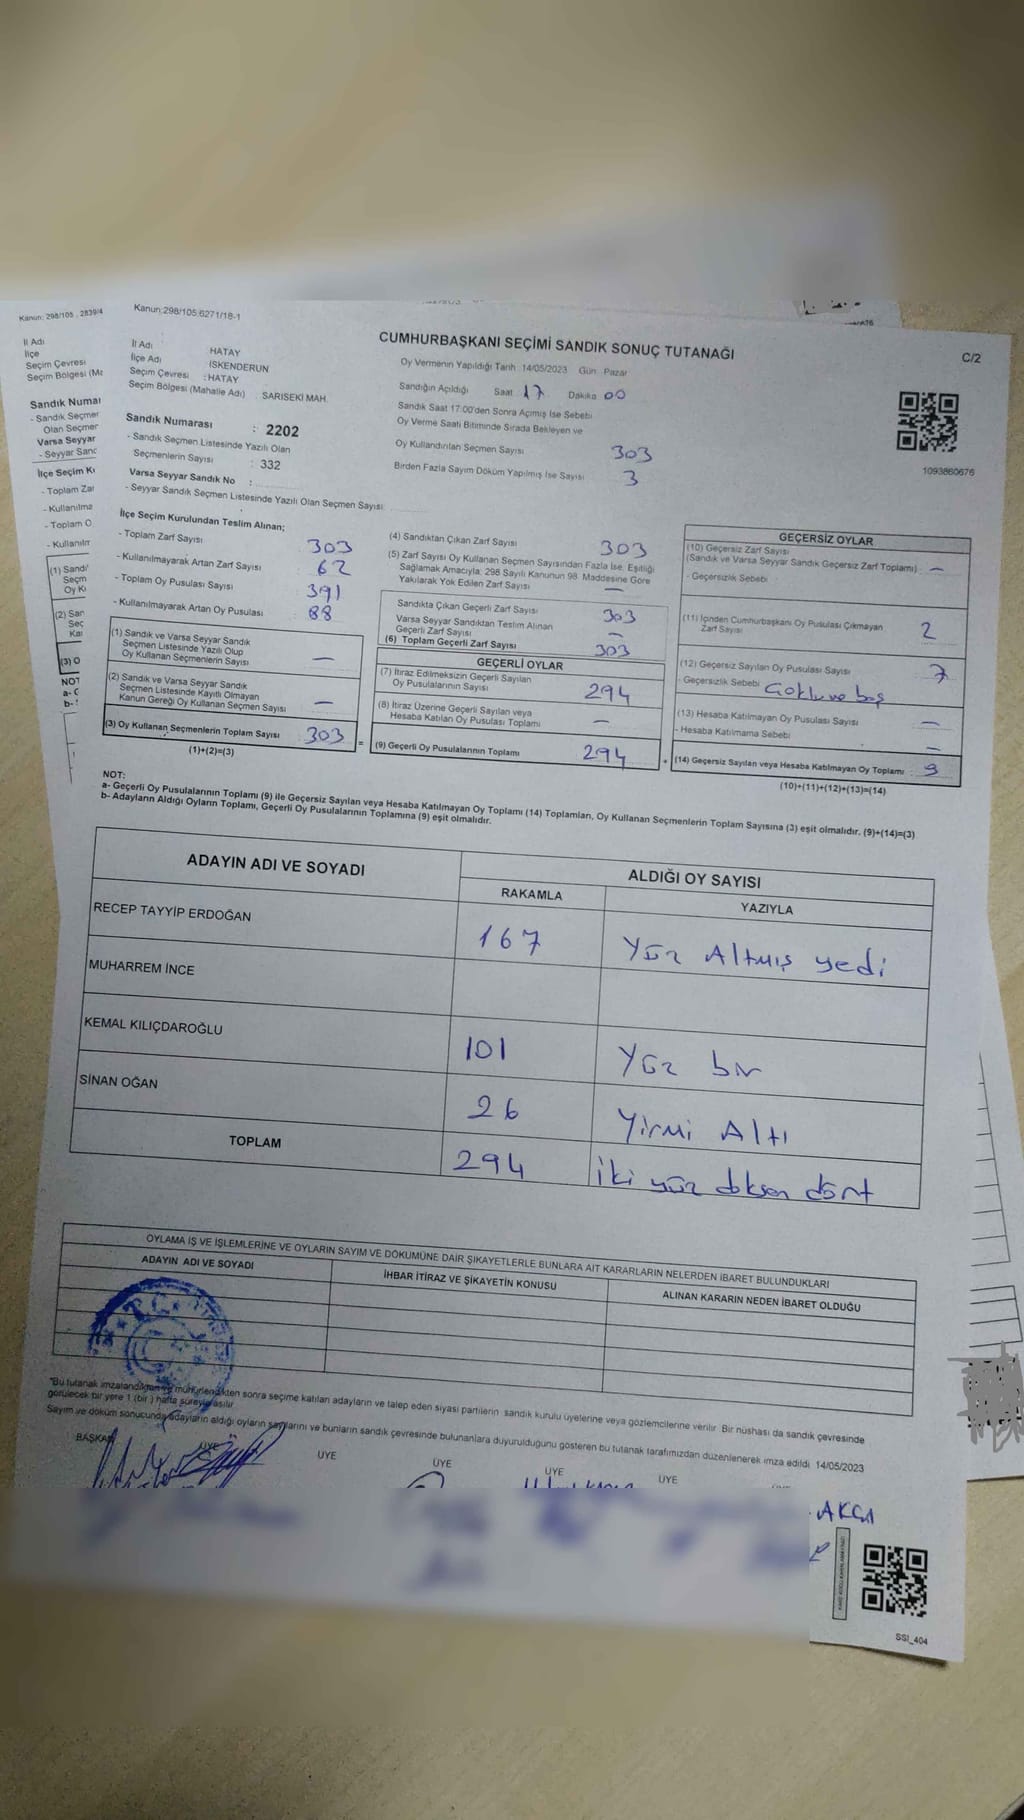 Kanun: 298/105 , 2839/4
İl Adı
İlçe
Seçim Çevresi
Seçim Bölgesi (Ma
Sandık Numar
- Sandık Seçmer
Olan Seçmer
Varsa Seyyar
- Seyyar Sand
İlçe Seçim Ku
- Toplam Zar
- Kullanılma
- Toplam O
- Kullanılm
(1) Sandı
Seçm
Oy Kı
(2) San
Seç
Ka
(3) O
NOT
a- G
b-
Kanun:298/105,6271/18-1
CUMHURBAŞKANI SEÇİMİ SANDIK SONUÇ TUTANAĞI
C/2
İl Adı : HATAY
İlçe Adı : İSKENDERUN
Seçim Çevresi : HATAY
Seçim Bölgesi (Mahalle Adı) SARISEKİ MAH.
Oy Vermenin Yapıldığı Tarih 14/05/2023 Gün Pazar
Sandığın Açıldığı Saat 17 Dakika 00
Sandık Saat 17:00'den Sonra Açılmış İse Sebebi
Oy Verme Saati Bitiminde Sırada Bekleyen ve
Oy Kullandırılan Seçmen Sayısı 303
Birden Fazla Sayım Döküm Yapılmış İse Sayısı 3
1093860676
Sandık Numarası : 2202
- Sandık Seçmen Listesinde Yazılı Olan
Seçmenlerin Sayısı : 332
Varsa Seyyar Sandık No :
- Seyyar Sandık Seçmen Listesinde Yazılı Olan Seçmen Sayısı:
İlçe Seçim Kurulundan Teslim Alınan;
- Toplam Zarf Sayısı 303
- Kullanılmayarak Artan Zarf Sayısı 62
- Toplam Oy Pusulası Sayısı 391
- Kullanılmayarak Artan Oy Pusulası 88
(1) Sandık ve Varsa Seyyar Sandık
Seçmen Listesinde Yazılı Olup
Oy Kullanan Seçmenlerin Sayısı —
(2) Sandık ve Varsa Seyyar Sandık
Seçmen Listesinde Kayıtlı Olmayan
Kanun Gereği Oy Kullanan Seçmen Sayısı —
(3) Oy Kullanan Seçmenlerin Toplam Sayısı 303
(1)+(2)=(3)
(4) Sandıktan Çıkan Zarf Sayısı 303
(5) Zarf Sayısı Oy Kullanan Seçmen Sayısından Fazla İse, Eşitliği
Sağlamak Amacıyla, 298 Sayılı Kanunun 98. Maddesine Göre
Yakılarak Yok Edilen Zarf Sayısı —
Sandıkta Çıkan Geçerli Zarf Sayısı 303
Varsa Seyyar Sandıktan Teslim Alınan
Geçerli Zarf Sayısı —
(6) Toplam Geçerli Zarf Sayısı 303
GEÇERLİ OYLAR
(7) İtiraz Edilmeksizin Geçerli Sayılan
Oy Pusulalarının Sayısı 294
(8) İtiraz Üzerine Geçerli Sayılan veya
Hesaba Katılan Oy Pusulası Toplamı —
= (9) Geçerli Oy Pusulalarının Toplamı 294
GEÇERSİZ OYLAR
(10) Geçersiz Zarf Sayısı
(Sandık ve Varsa Seyyar Sandık Geçersiz Zarf Toplamı) —
- Geçersizlik Sebebi
(11) İçinden Cumhurbaşkanı Oy Pusulası Çıkmayan
Zarf Sayısı 2
(12) Geçersiz Sayılan Oy Pusulası Sayısı 7
- Geçersizlik Sebebi
(13) Hesaba Katılmayan Oy Pusulası Sayısı —
- Hesaba Katılmama Sebebi —
+ (14) Geçersiz Sayılan veya Hesaba Katılmayan Oy Toplamı : 9
(10)+(11)+(12)+(13)=(14)
NOT:
a- Geçerli Oy Pusulalarının Toplamı (9) ile Geçersiz Sayılan veya Hesaba Katılmayan Oy Toplamı (14) Toplamları, Oy Kullanan Seçmenlerin Toplam Sayısına (3) eşit olmalıdır. (9)+(14)=(3)
b- Adayların Aldığı Oyların Toplamı, Geçerli Oy Pusulalarının Toplamına (9) eşit olmalıdır.
ADAYIN ADI VE SOYADI
ALDIĞI OY SAYISI
RAKAMLA YAZIYLA
RECEP TAYYİP ERDOĞAN 167 Yüz Altmış yedi
MUHARREM İNCE
KEMAL KILIÇDAROĞLU 101 Yüz bir
SİNAN OĞAN 26 Yirmi Altı
TOPLAM 294 iki yüz doksan dört
OYLAMA İŞ VE İŞLEMLERİNE VE OYLARIN SAYIM VE DÖKÜMÜNE DAİR ŞİKAYETLERLE BUNLARA AİT KARARLARIN NELERDEN İBARET BULUNDUKLARI
ADAYIN ADI VE SOYADI İHBAR İTİRAZ VE ŞİKAYETİN KONUSU ALINAN KARARIN NEDEN İBARET OLDUĞU
T.C.
"Bu tutanak imzalandıktan ve mühürlendikten sonra seçime katılan adayların ve talep eden siyasi partilerin sandık kurulu üyelerine veya gözlemcilerine verilir. Bir nüshası da sandık çevresinde
görülecek bir yere 1 (bir ) hafta süreyle asılır
Sayım ve döküm sonucunda adayların aldığı oyların sayılarını ve bunların sandık çevresinde bulunanlara duyurulduğunu gösteren bu tutanak tarafımızdan düzenlenerek imza edildi. 14/05/2023
BAŞKAN ÜYE ÜYE ÜYE ÜYE ÜYE
AKÇA
SSI_404